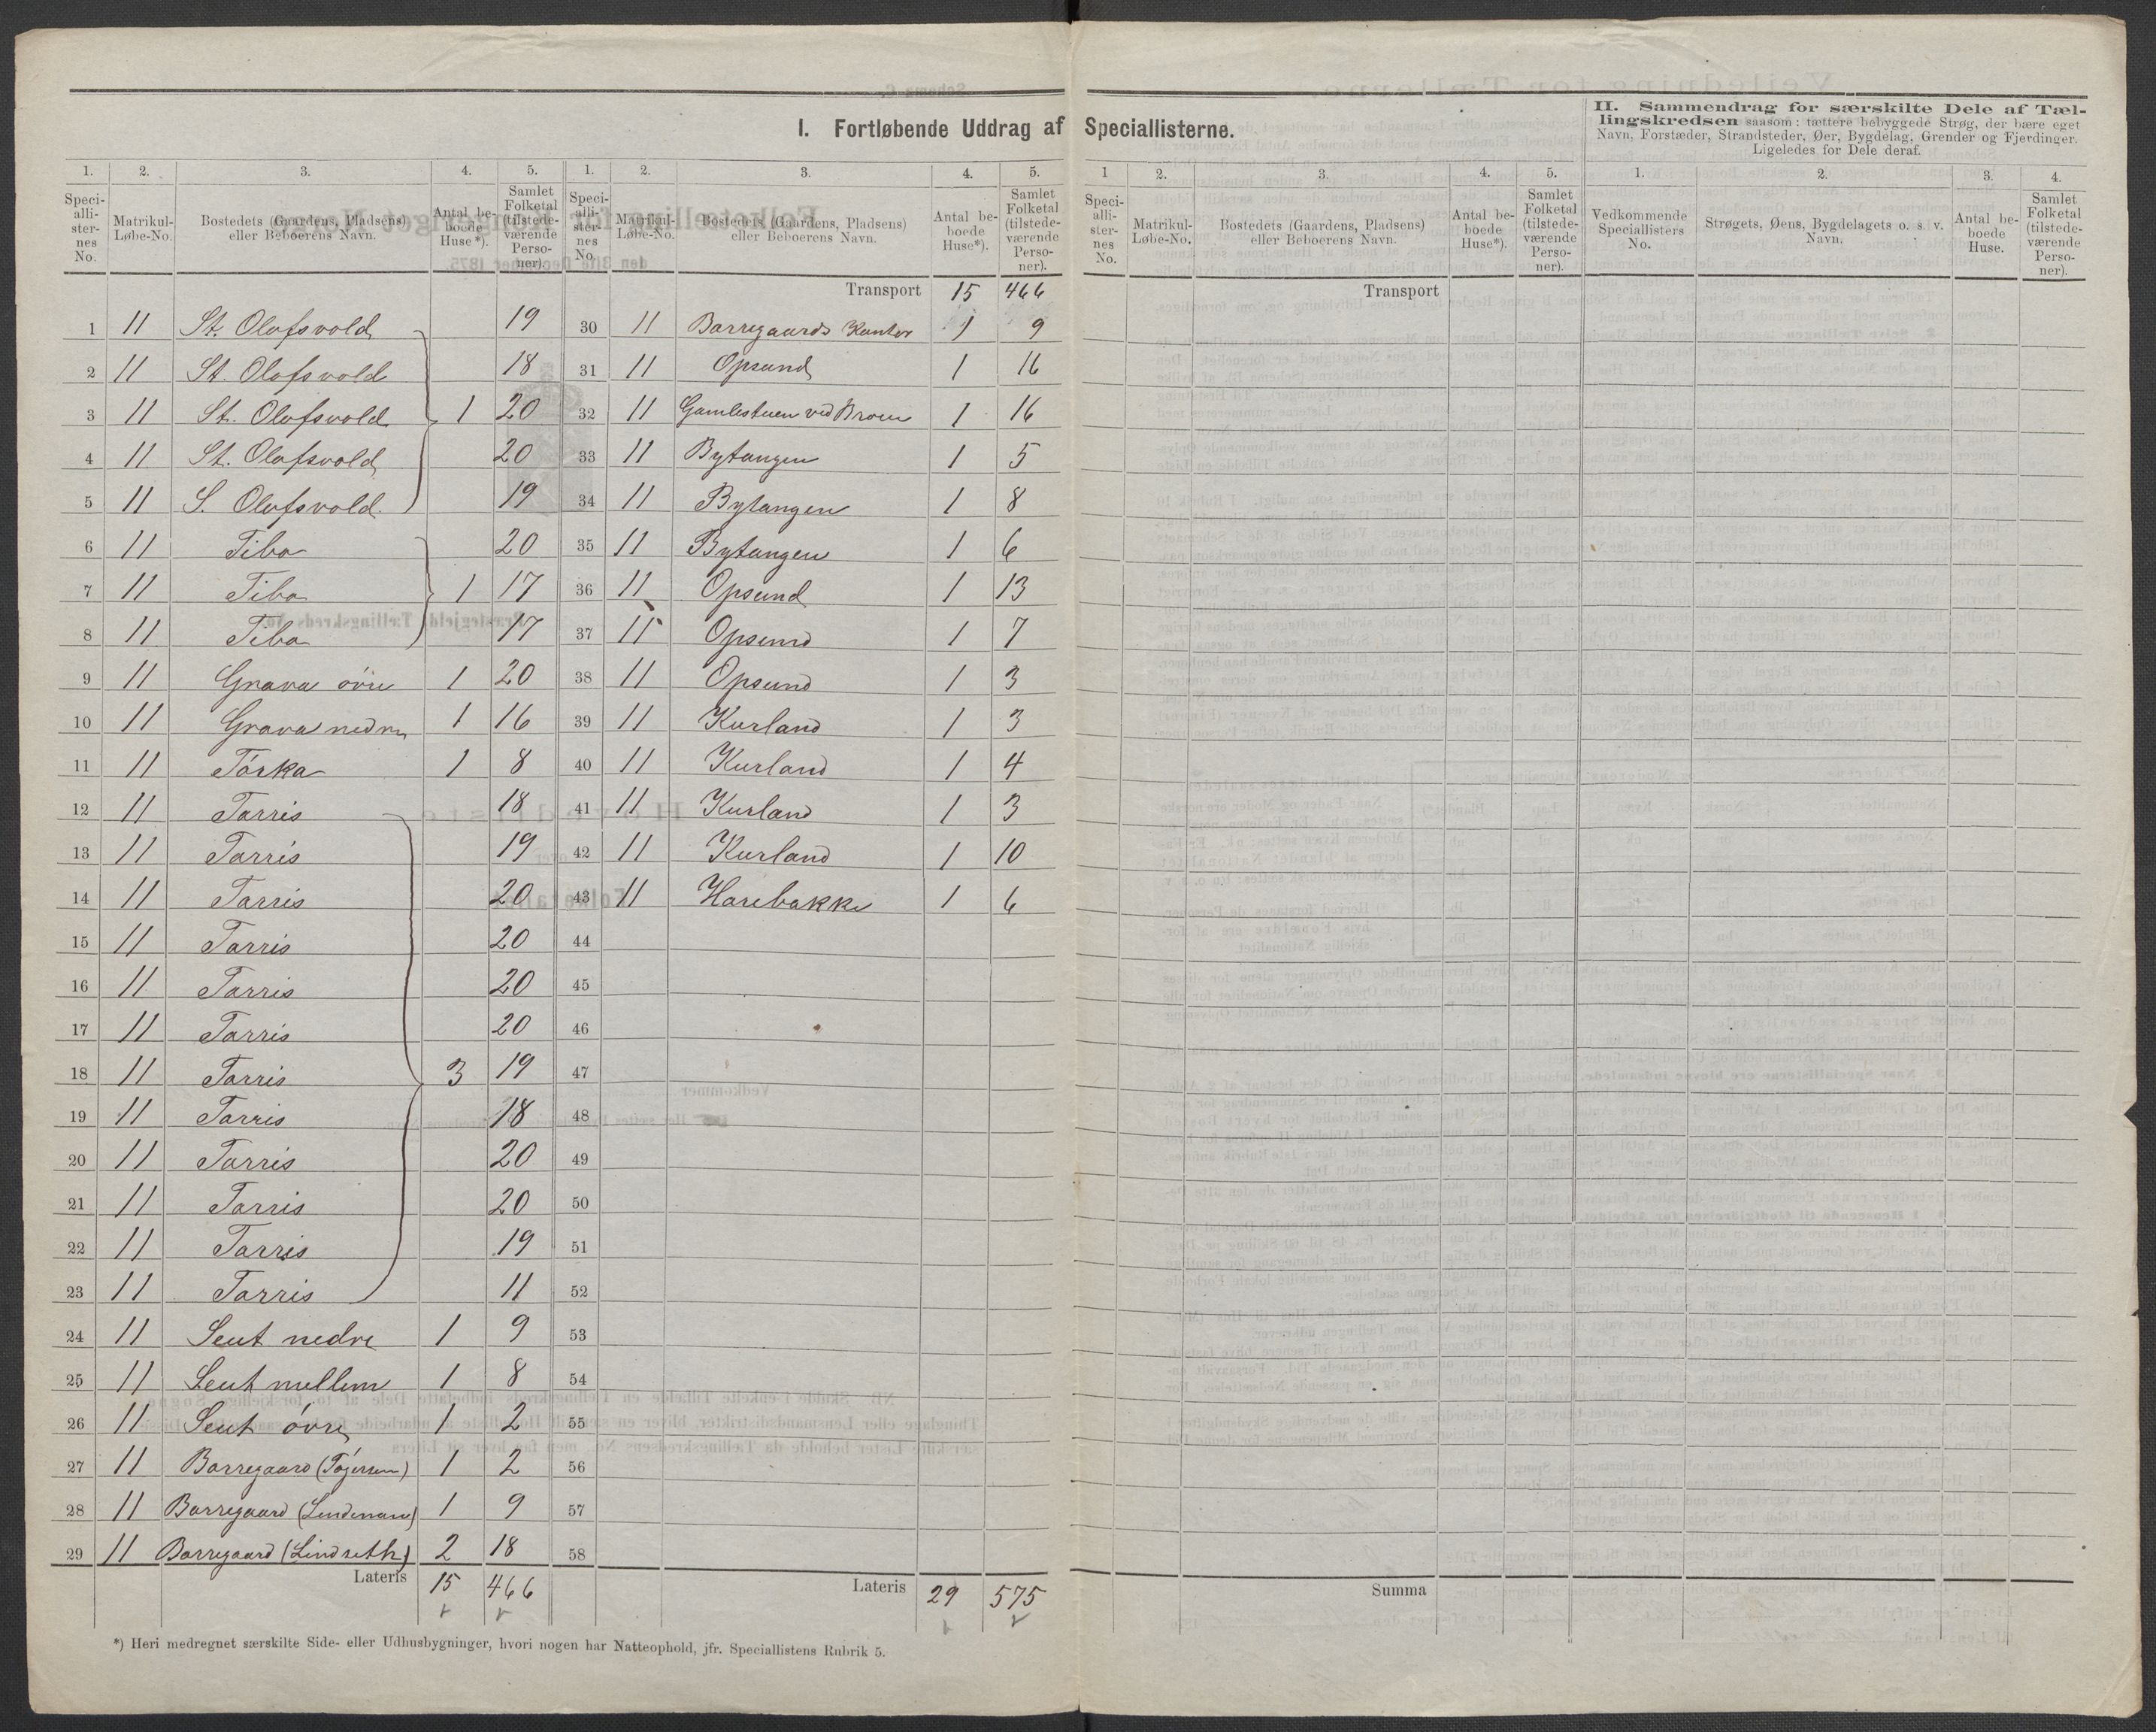 I. Fortløbende Uddrag af Speciallisterne.
1. 2. 3. 4. 5.
Speciallisternes No. Matrikul-Løbe-No. Bostedets (Gaardens, Pladsens) eller Beboerens Navn. Antal beboede Huse*). Samlet Folketal (tilstedeværende Personer).
1 11 St. Olafsvold 19
2 11 St. Olafsvold 18
3 11 St. Olafsvold 1 20
4 11 St. Olafsvold 20
5 11 S. Olafsvold 19
6 11 Tibo 20
7 11 Tibo 1 17
8 11 Tibo 17
9 11 Grava øvre 1 20
10 11 Grava nedre 1 16
11 11 Tórka 1 8
12 11 Tarris 18
13 11 Tarris 19
14 11 Tarris 20
15 11 Tarris 20
16 11 Tarris 20
17 11 Tarris 20
18 11 Tarris 3 19
19 11 Tarris 18
20 11 Tarris 20
21 11 Tarris 20
22 11 Tarris 19
23 11 Tarris 11
24 11 Leut nedre 1 9
25 11 Leut mellem 1 8
26 11 Leut óvre 1 2
27 11 Borregaard 1 2
28 11 Borregaard (Lindemann) 1 9
29 11 Borregaard (Lindseth) 2 18
Lateris 15 466
*) Heri medregnet særskilte Side- eller Udhusbygninger, hvori nogen har Natteophold, jfr. Speciallistens Rubrik 5.
1. 2. 3. 4. 5.
Speciallisternes No. Matrikul-Løbe-No. Bostedets (Gaardens, Pladsens) eller Beboerens Navn. Antal beboede Huse*). Samlet Folketal (tilstedeværende Personer).
Transport 15 466
30 11 Borregaards Kontor 1 9
31 11 Opsund 1 16
32 11 Gamlestuen ved Broen 1 16
33 11 Bytangen 1 5
34 11 Bytangen 1 8
35 11 Bytangen 1 6
36 11 Opsund 1 13
37 11 Opsund 1 7
38 11 Opsund 1 3
39 11 Kurland 1 3
40 11 Kurland 1 4
41 11 Kurland 1 3
42 11 Kurland 1 10
43 11 Harebakke 1 6
44
45
46
47
48
49
50
51
52
53
54
55
56
57
58
Lateris 29 575
1 2. 3. 4. 5.
Speciallisternes No. Matrikul-Løbe-No. Bostedets (Gaardens, Pladsens) eller Beboerens Navn. Antal beboede Huse*). Samlet Folketal (tilstedeværende Personer).
Transport
Summa
II. Sammendrag for særskilte Dele af Tællingskredsen saasom: tættere bebyggede Strøg, der bære eget Navn, Forstæder, Strandsteder, Øer, Bygdelag, Grender og Fjerdinger. Ligeledes for Dele deraf.
1. 2. 3. 4.
Vedkommende Speciallisters No. Strøgets, Øens, Bygdelagets o. s. v. Navn. Antal beboede Huse. Samlet Folketal (tilstedeværende Personer).